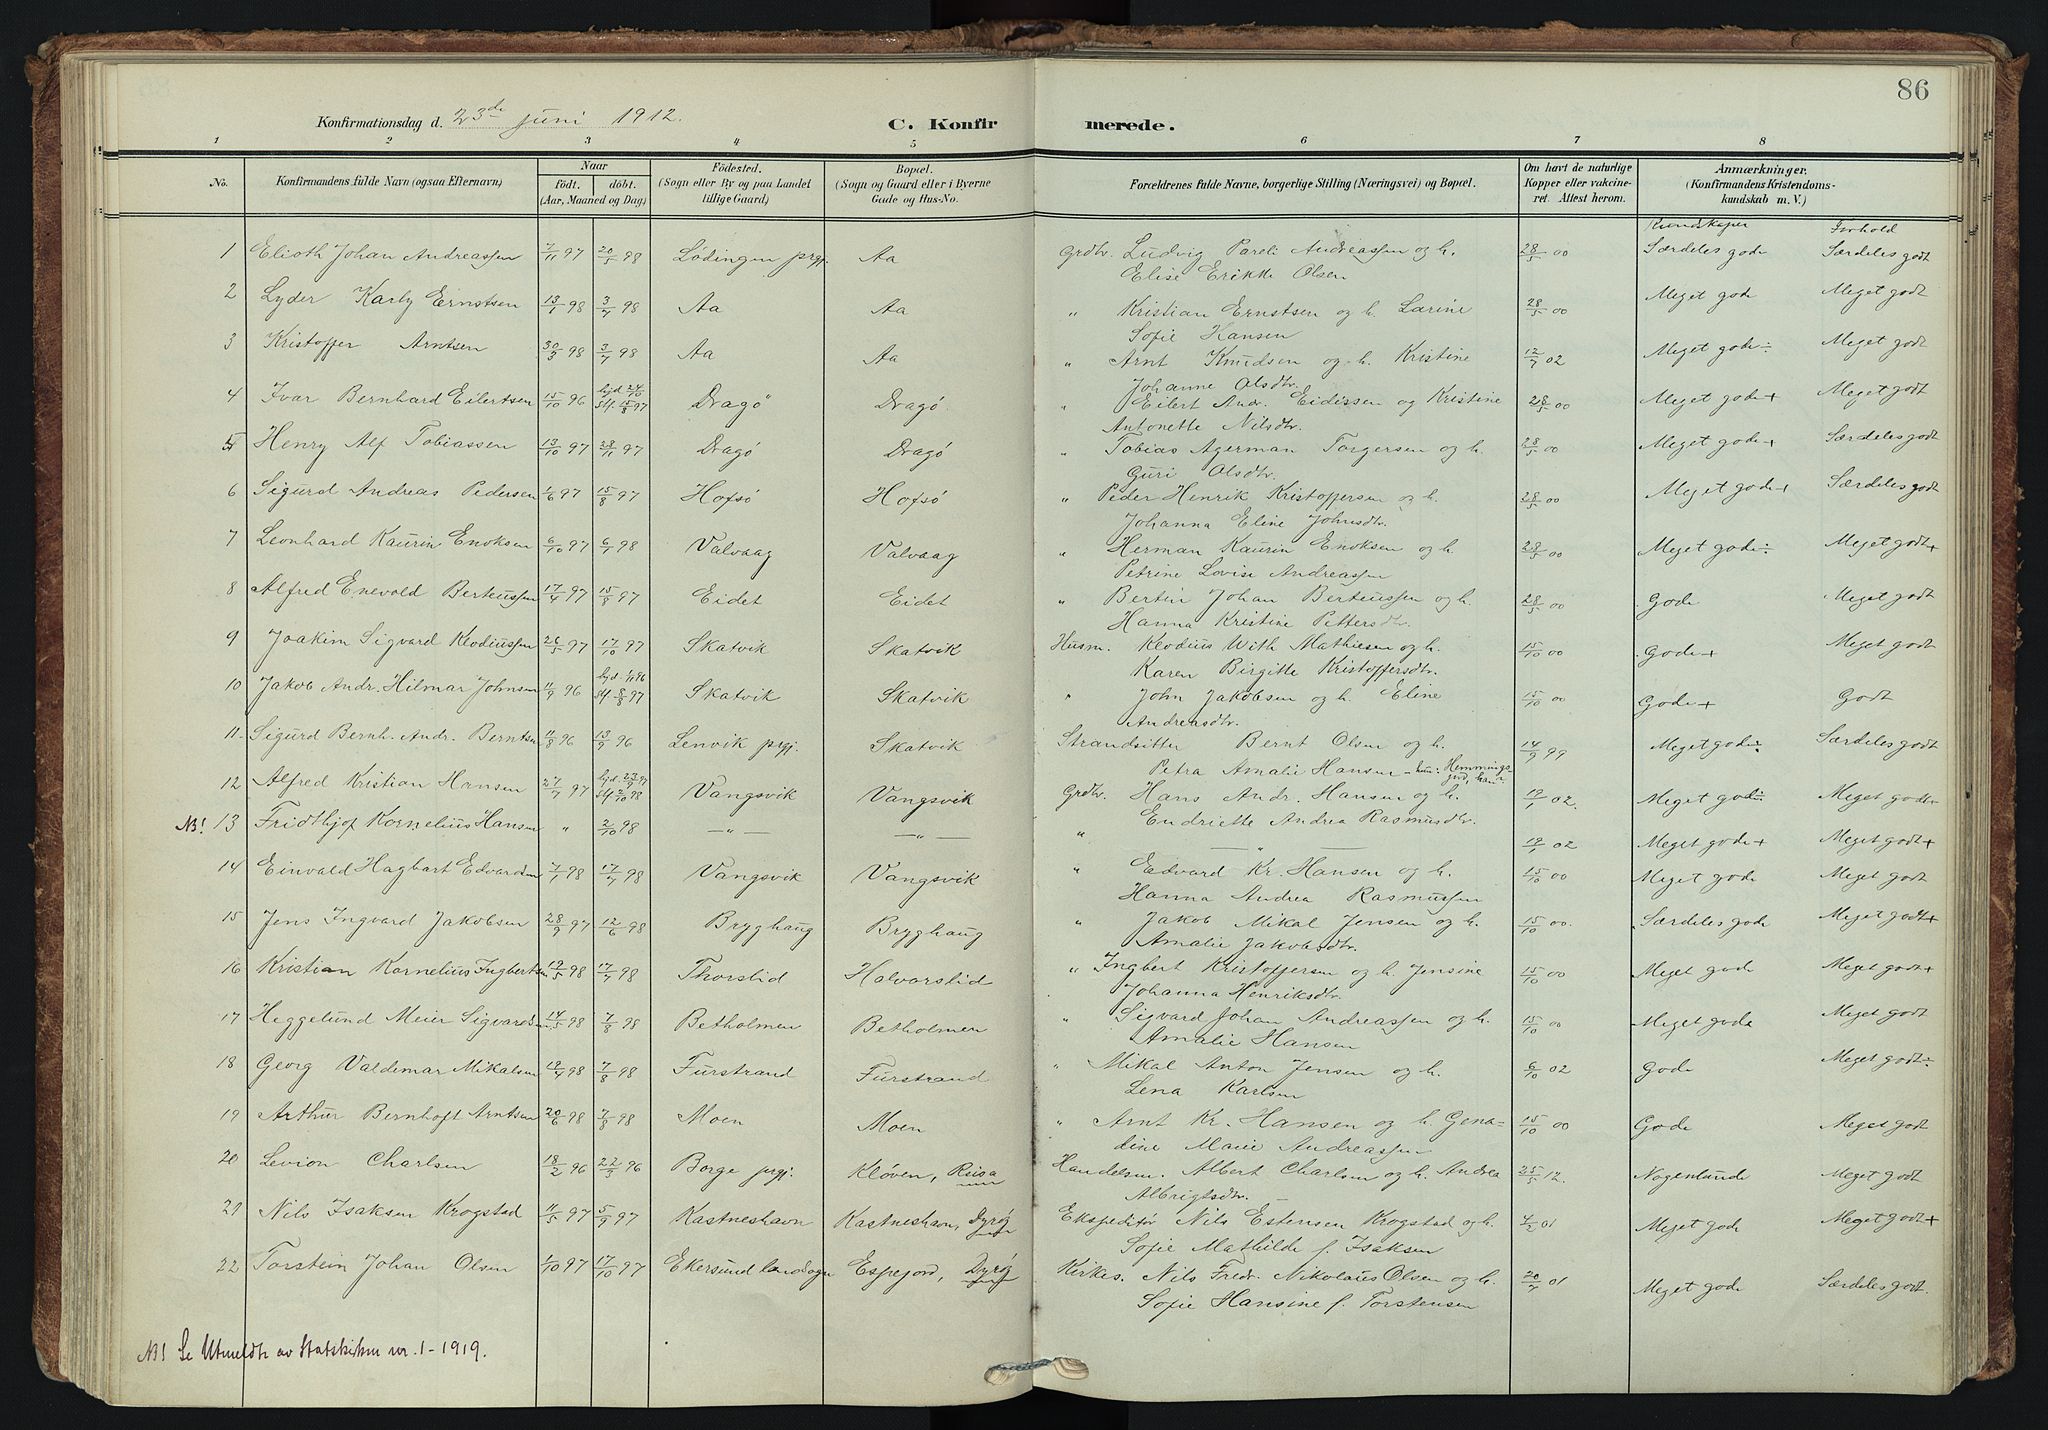 86
Konfirmationsdag d. 23de juni 1912.
C. Konfirmerede.
1 2 3 4 5 6 7 8
No. Konfirmandens fulde Navn (ogsaa Efternavn). Naar født. døbt. (Aar, Maaned og Dag) Fødested. (Sogn eller By og paa Landet tillige Gaard) Bopæl. (Sogn og Gaard eller i Byerne Gade og Hus-No. Forældrenes fulde Navne, borgerlige Stilling (Næringsvei) og Bopæl. Om havt de naturlige Kopper eller vakcineret. Attest herom. Anmærkninger. (Konfirmandens Kristendomskundskab m. V.)
Kundskaper Forhold
1 Elioth Johan Andreassen 7/11 97 20/5 98 Lødingen prgj. Aa Grdbr. Ludvig Pareli Andreassen og h. 28/5 00 Særdeles gode Særdeles godt
Elise Erikke Olsen
2 Lyder Karly Ernstsen 13/1 98 3/7 98 Aa Aa " Kristian Ernstsen og h. Larine 28/5 00 Meget gode Meget godt
Sofie Hansen
3 Kristoffer Arntsen 30/3 98 3/7 98 Aa Aa " Arnt Knudsen og h. Kristine 12/7 02 Meget gode÷ Meget godt
Johanne Olsdtr.
4 Ivar Bernhard Eilertsen 15/10 96 hjd. 24/10 stf. 15/8 97 Dragø Dragø " Eilert Andr. Eidissen og Kristine 28/5 00 Meget gode+ Meget godt
Antonette Nilsdtr.
5 Henry Alf Tobiassen 13/10 97 28/11 97 Dragø Dragø " Tobias Agerman Torgersen og h. 28/5 00 Meget gode+ Særdeles godt
Guri Olsdtr.
6 Sigurd Andreas Pedersen 1/6 97 15/8 97 Hofsø Hofsø " Peder Henrik Kristoffersen og h. 28/5 00 Meget gode+ Særdeles godt
Johanna Eline Johnsdtr.
7 Leonhard Kaurin Enoksen 6/10 97 6/1 98 Valvaag Valvaag " Herman Kaurin Enoksen og h. 28/5 00 Meget gode÷ Meget godt+
Petrine Lovise Andreassen
8 Alfred Enevold Berteussen 17/4 97 15/8 97 Eidet Eidet " Bertin Johan Berteussen og h. 28/5 00 Gode Meget godt
Hanna Kristine Pettersdtr.
9 Joakim Sigvard Klodiussen 26/5 97 17/10 97 Skatvik Skatvik Husm. Klodius With Mathiesen og h. 15/10 00 Gode+ Meget godt
Karen Birgitte Kristoffersdtr.
10 Jakob Andr. Hilmar Johnsen 11/9 96 hjd. 1/11 96 stf. 8/8 97 Skatvik Skatvik " John Jakobsen og h. Eline 15/10 00 Gode+ Godt
Andreasdtr.
11 Sigurd Bernh. Andr. Berntsen 11/8 96 13/9 96 Lenvik prgj. Skatvik Strandsitter Bernt Olsen og h. 14/9 99 Meget gode÷ Særdeles godt
Petra Amalie Hansen
12 Alfred Kristian Hansen 27/7 97 stf. 2/10 98 Vangsvik Vangsvik Grdbr. Hans Andr. Hansen og h. 19/1 02. Meget gode÷ Meget godt+
Endriette Andrea Rasmusdtr.
NB! 13 Fridthjof Kornelius Hansen " 2/10 98 —"— —"— " —"— 19/1 02 Meget gode+ Meget godt+
14 Einvald Hagbart Edvardsen 7/1 98 17/7 98 Vangsvik Vangsvik " Edvard Kr. Hansen og h. 15/10 00 Meget gode Meget godt
Hanna Andrea Rasmussen
15 Jens Ingvard Jakobsen 28/9 97 12/6 98 Bryghaug Bryghaug " Jakob Mikal Jensen og h. 15/10 00. Særdeles gode Meget godt+
Amalie Jakobsdtr.
16 Kristian Kornelius Ingbertsen 19/5 98 17/7 98 Thorslid Halvorslid " Ingbert Kristoffersen og h. Jensine 15/10 00 Meget gode Meget godt+
Johanna Henriksdtr.
17 Heggelund Meier Sigvardsen 14/5 98 7/8 98 Betholmen Betholmen " Sigvard Johan Andreassen og h. 15/10 00 Meget gode Meget godt
Amalie Hansen
18 Georg Valdemar Mikalsen 19/4 98 7/8 98 Furstrand Furstrand " Mikal Anton Jensen og h. 6/10 02 Gode Meget godt÷
Lena Karlsen
19 Arthur Bernhoft Arntsen 20/6 98 7/8 98 Moen Moen " Arnt Kr. Hansen og h. Gena- 15/10 00 Gode Meget godt
dine Marie Andreassen
20 Levion Charlsen 18/2 96 22/3 96 Borge prgj. Kløven, Reisa Handelsm. Albert Charlsen og h. Andrea 25/5 12. Nogenlunde Meget godt
Albrigtsdtr.
21 Nils Isaksen Krogstad 11/5 97 5/9 97 Kastneshavn Kastneshavn, Dyrø Ekspeditør Nils Estensen Krogstad og h. 4/2 01 Meget gode Meget godt+
Sofie Mathilde f. Isaksen
22 Torstein Johan Olsen 1/10 97 17/10 97 Ekersund landsogn Espejord, Dyrø Kirkes. Nils Fredr. Nikolaus Olsen og h. 20/7 01 Meget gode Særdeles godt.
Sofie Hansine f. Torstensen
NB! Se Utmeldte av Statskirken nr. 1 - 1919.